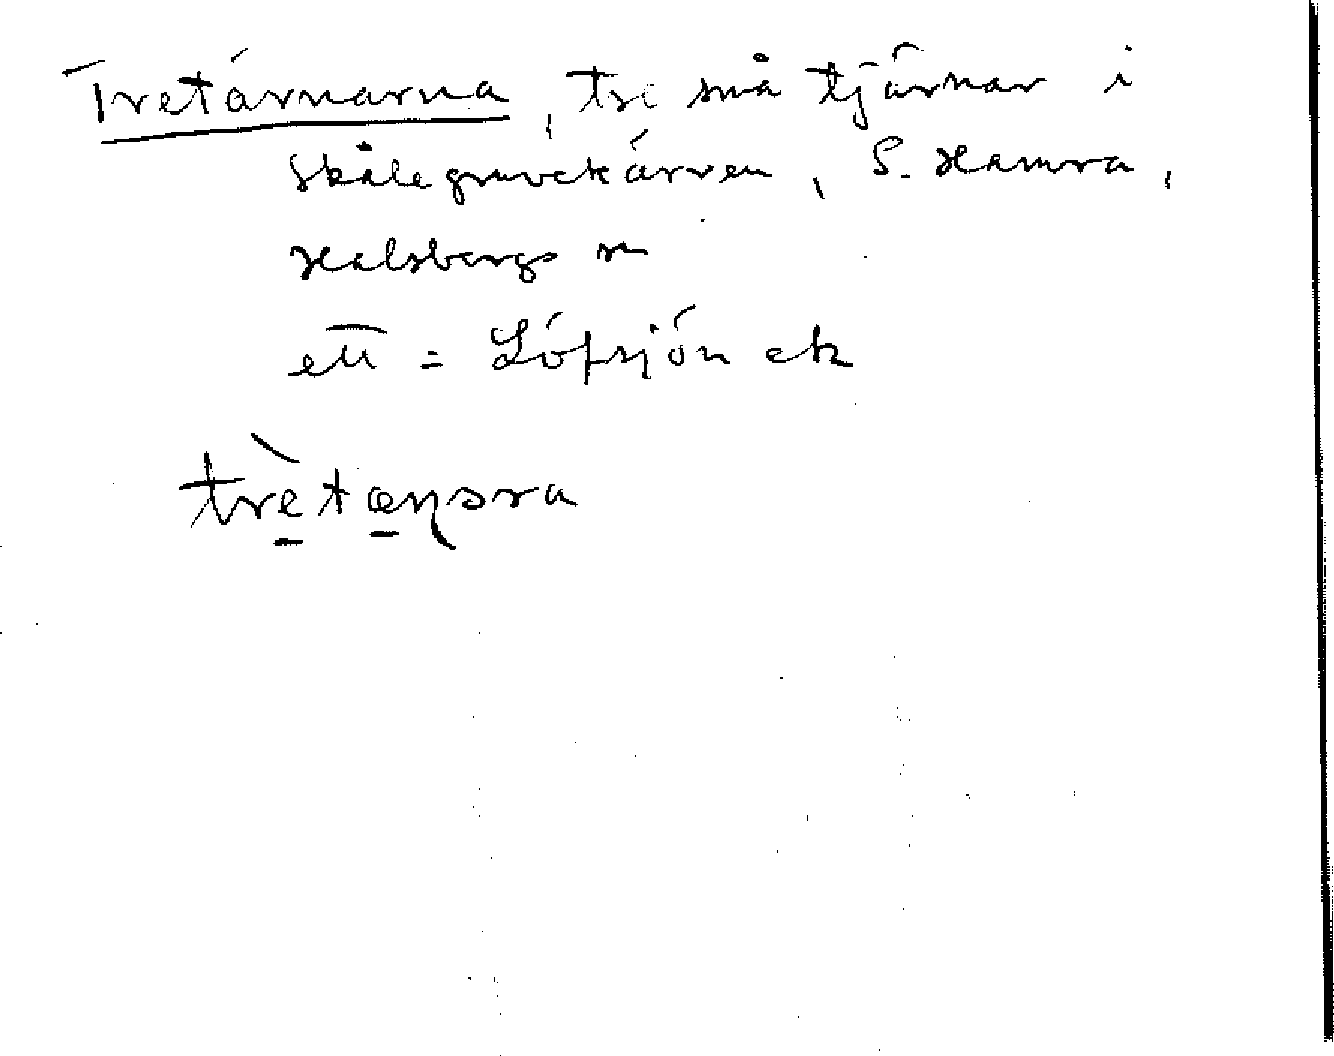 Tretärnarna, tre små tjärnar i
Skålegruvekärren, S. Hamra,
Halsbergs sn
ett = Löpsjön ek
trètæṇərna